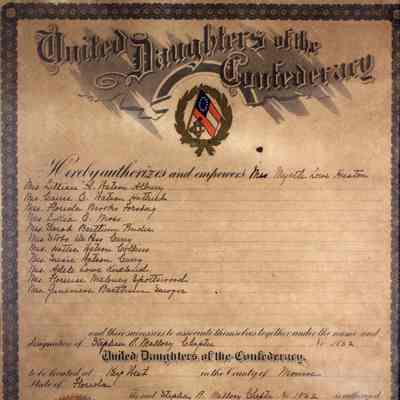 United Daughters of the
Confederacy
Hereby authorizes and empowers Mrs. Myrtle Lowe Huston
Mrs Lillian H. Watson Albury
Mrs Carrie C. Watson
Mrs. Florida Brooks
Mrs Lidia C. Moss
Mrs Barthlum
Mrs Curry
Mrs. Hattie Watson Collins
Mrs. Susie Watson Curry
Mrs. Adele Lowe
Mrs. Florence Maloney Spottswood
Mrs. Genevieve Barthlum
and their successors to associate themselves together under the name and
designation of Stephen R. Mallory Chapter No 1852
United Daughters of the Confederacy,
to be located at Key West in the County of Monroe
State of Florida
said Stephen R. Mallory Chapter No 1852 is authorized